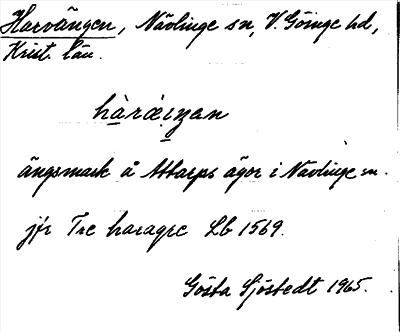 Harvängen, Nävlinge sn, V. Göinge hd,
Krist. län.
ängsmark å Attarps ägor i Nävlinge sn.
jfr Tre haragre Lb 1569.
Gösta Sjöstedt 1965.